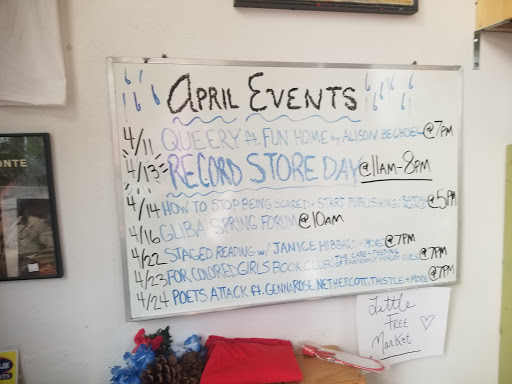 APRIL EVENTS
4/11 QUEERY ft. FUN HOME by ALISON BECHDEL @7PM
4/13 RECORD STORE DAY @11AM-8PM
4/14 HOW TO STOP BEING SCARED + START PUBLISHING: @5PM
4/16 GLIBA SPRING FORUM @10AM
4/22 STAGED READING w/ JANICE HIBBARD + MORE @7PM
4/23 FOR COLORED GIRLS BOOK CLUB: THE CARE + FEEDING OF RAVENOUSLY HUNGRY GIRLS @7PM
4/24 POETS ATTACK ft. GENNAROSE NETHERCOTT, THISTLE + MORE @7PM
Little
FREE
Market
ONTE